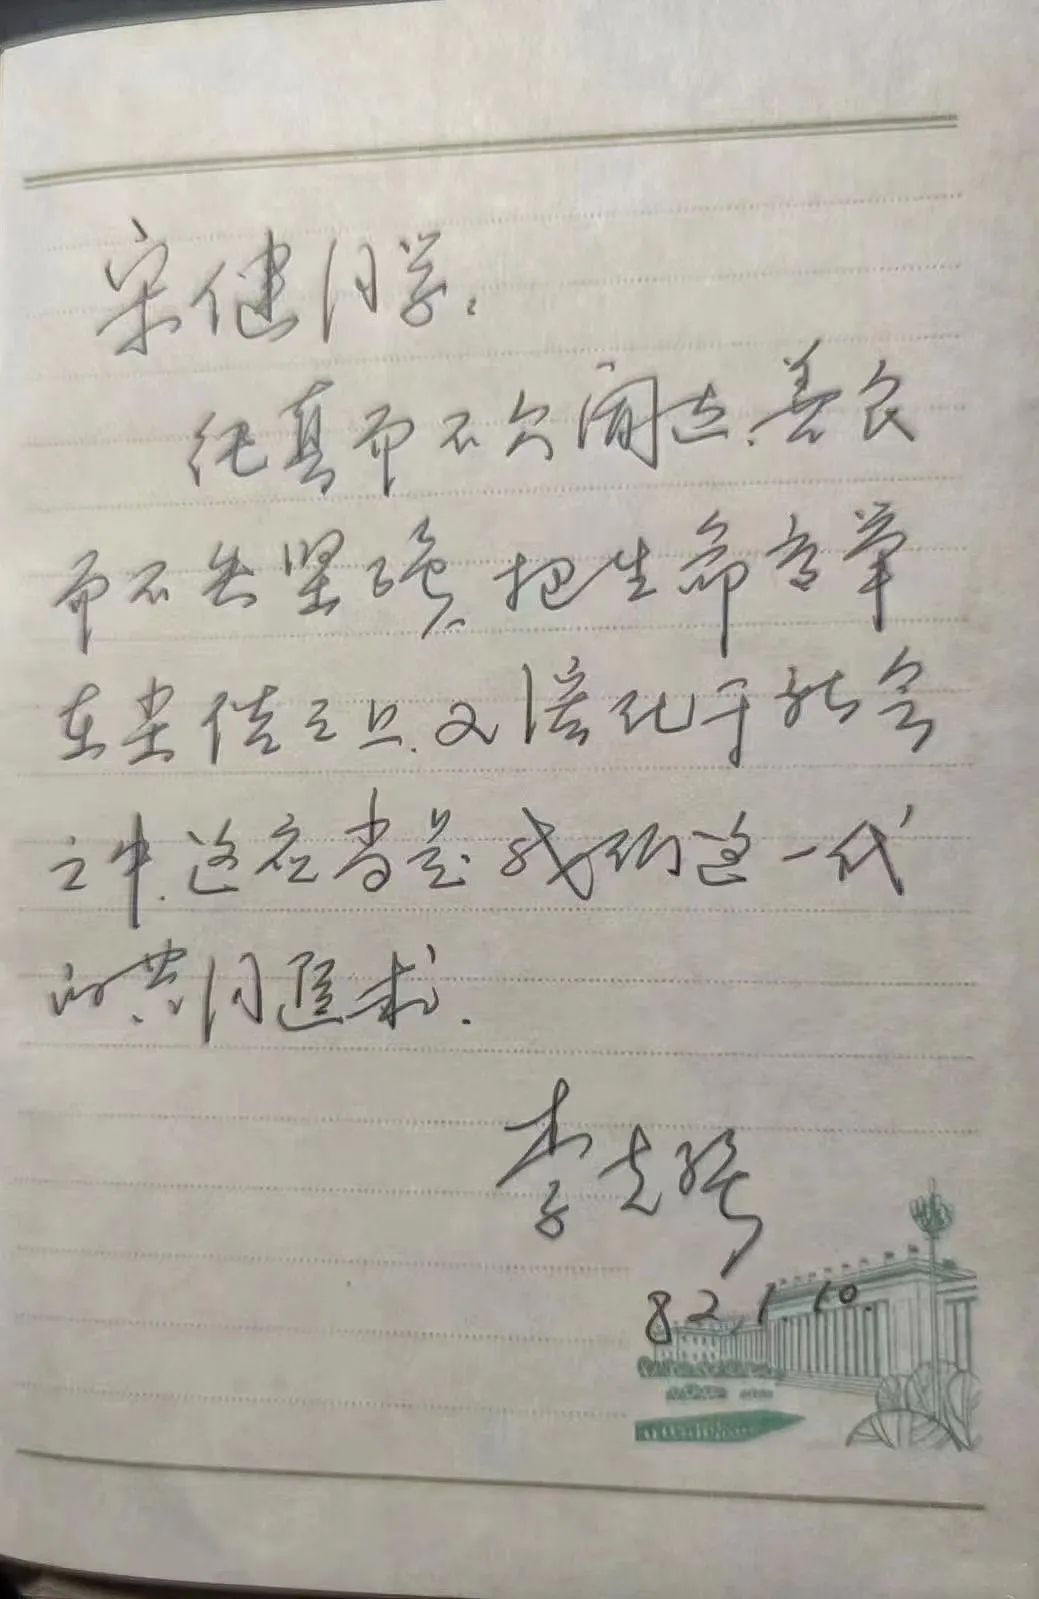 宋健同学:
纯真而不欠阔达,善良
而不失坚强,把生命高擎
在尘俗之上,又溶化于社会
之中,这应当是我们这一代
的共同追求.
李克强
82.1.10.